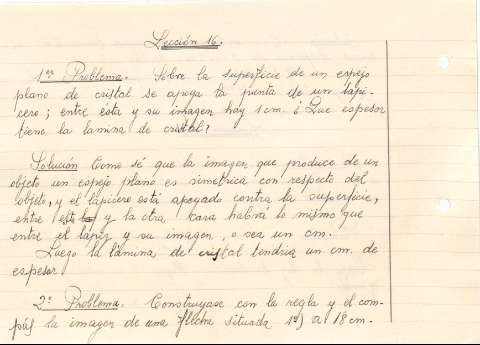 Lección 16.
1er Problema. Sobre la superficie de un espejo
plano de cristal se apoya la punta de un lapi-
cero; entre ésta y su imagen hay 1 cm. ¿Que espesor
tiene la lamina de cristal?
Solución Como sé que la imagen que produce de un
objeto un espejo plano es simetrica con respecto del
objeto, y el lápicero está apoyado contra la superficie,
entre esta y la otra cara habrá lo mismo que
entre el lapiz y su imagen, o sea un cm.
Luego la lámina de cristal tendria un cm. de
espesor
2º Problema. Construyase con la regla y el com-
pás la imagen de una flecha situada 1º) a 18 cm.